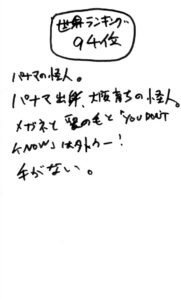 世界ランキング
94位
パナマの怪人。
パナマ出身、大阪育ちの怪人。
メガネと髪の毛と「YOU DON'T
KNOW」はタトゥー！
手がない。